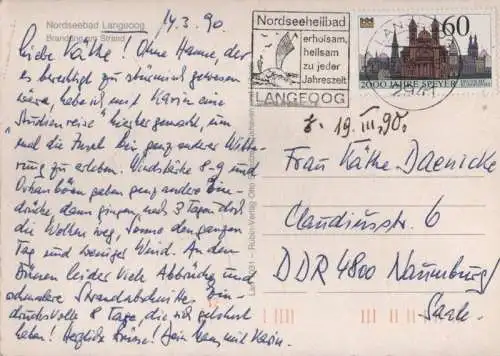 Nordseebad Langeoog
Brandung am Strand
14.3.90
Liebe Käthe! Ohne Hanne, der
es berechtigt zu stürmisch gewesen
wäre, habe ich mit Karin eine
"Studienreise" hierher gemacht, um
mal die Insel bei ganz anderer Witte-
rung zu erleben. Windstärke 8-9 und
Orkanböen gaben ganz andere Ein-
drücke, dann gingen nach 3 Tagen dort
die Wolken weg, Sonne den ganzen
Tag und weniger Wind. An den
Dünen leider viele Abbrüche und
schmalere Strandabschnitte. Ein-
drucksvolle 8 Tage, die sich gelohnt
haben! Herzliche Grüsse! Dein Hans mit Karin.
Nordseeheilbad
erholsam,
heilsam
zu jeder
Jahreszeit
LANGEOOG
60
2000 JAHRE SPEYER
19.III.90.
Frau Käthe Daenicke
Claudiusstr. 6
DDR 4800 Naumburg/
Saale